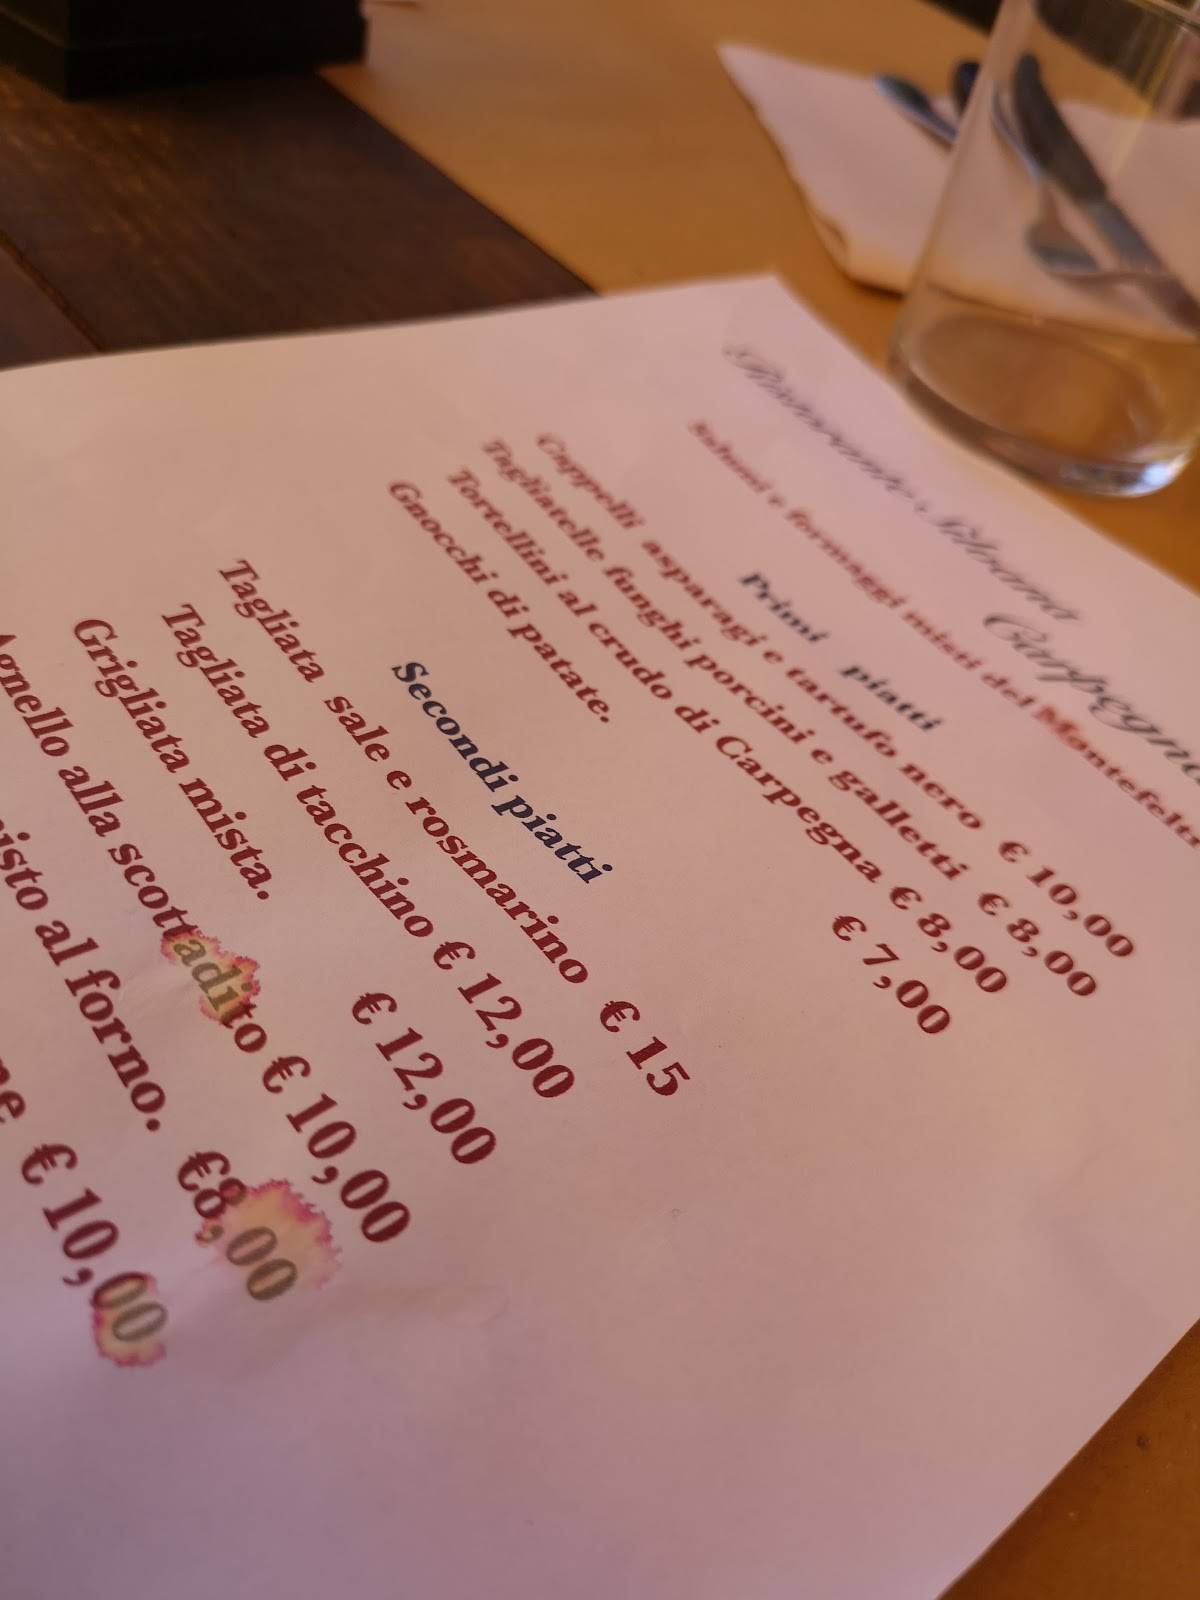 Ristorante Silvana
Carpegna
Salumi e formaggi misti del Montefeltr
Primi piatti
Cappelli asparagi e tartufo nero € 10,00
Tagliatelle funghi porcini e galletti € 8,00
Tortellini al crudo di Carpegna € 8,00
Gnocchi di patate. € 7,00
Secondi piatti
Tagliata sale e rosmarino € 15
Tagliata di tacchino € 12,00
Grigliata mista. € 12,00
Agnello alla scottadito € 10,00
isto al forno. €8,00
ne € 10,00